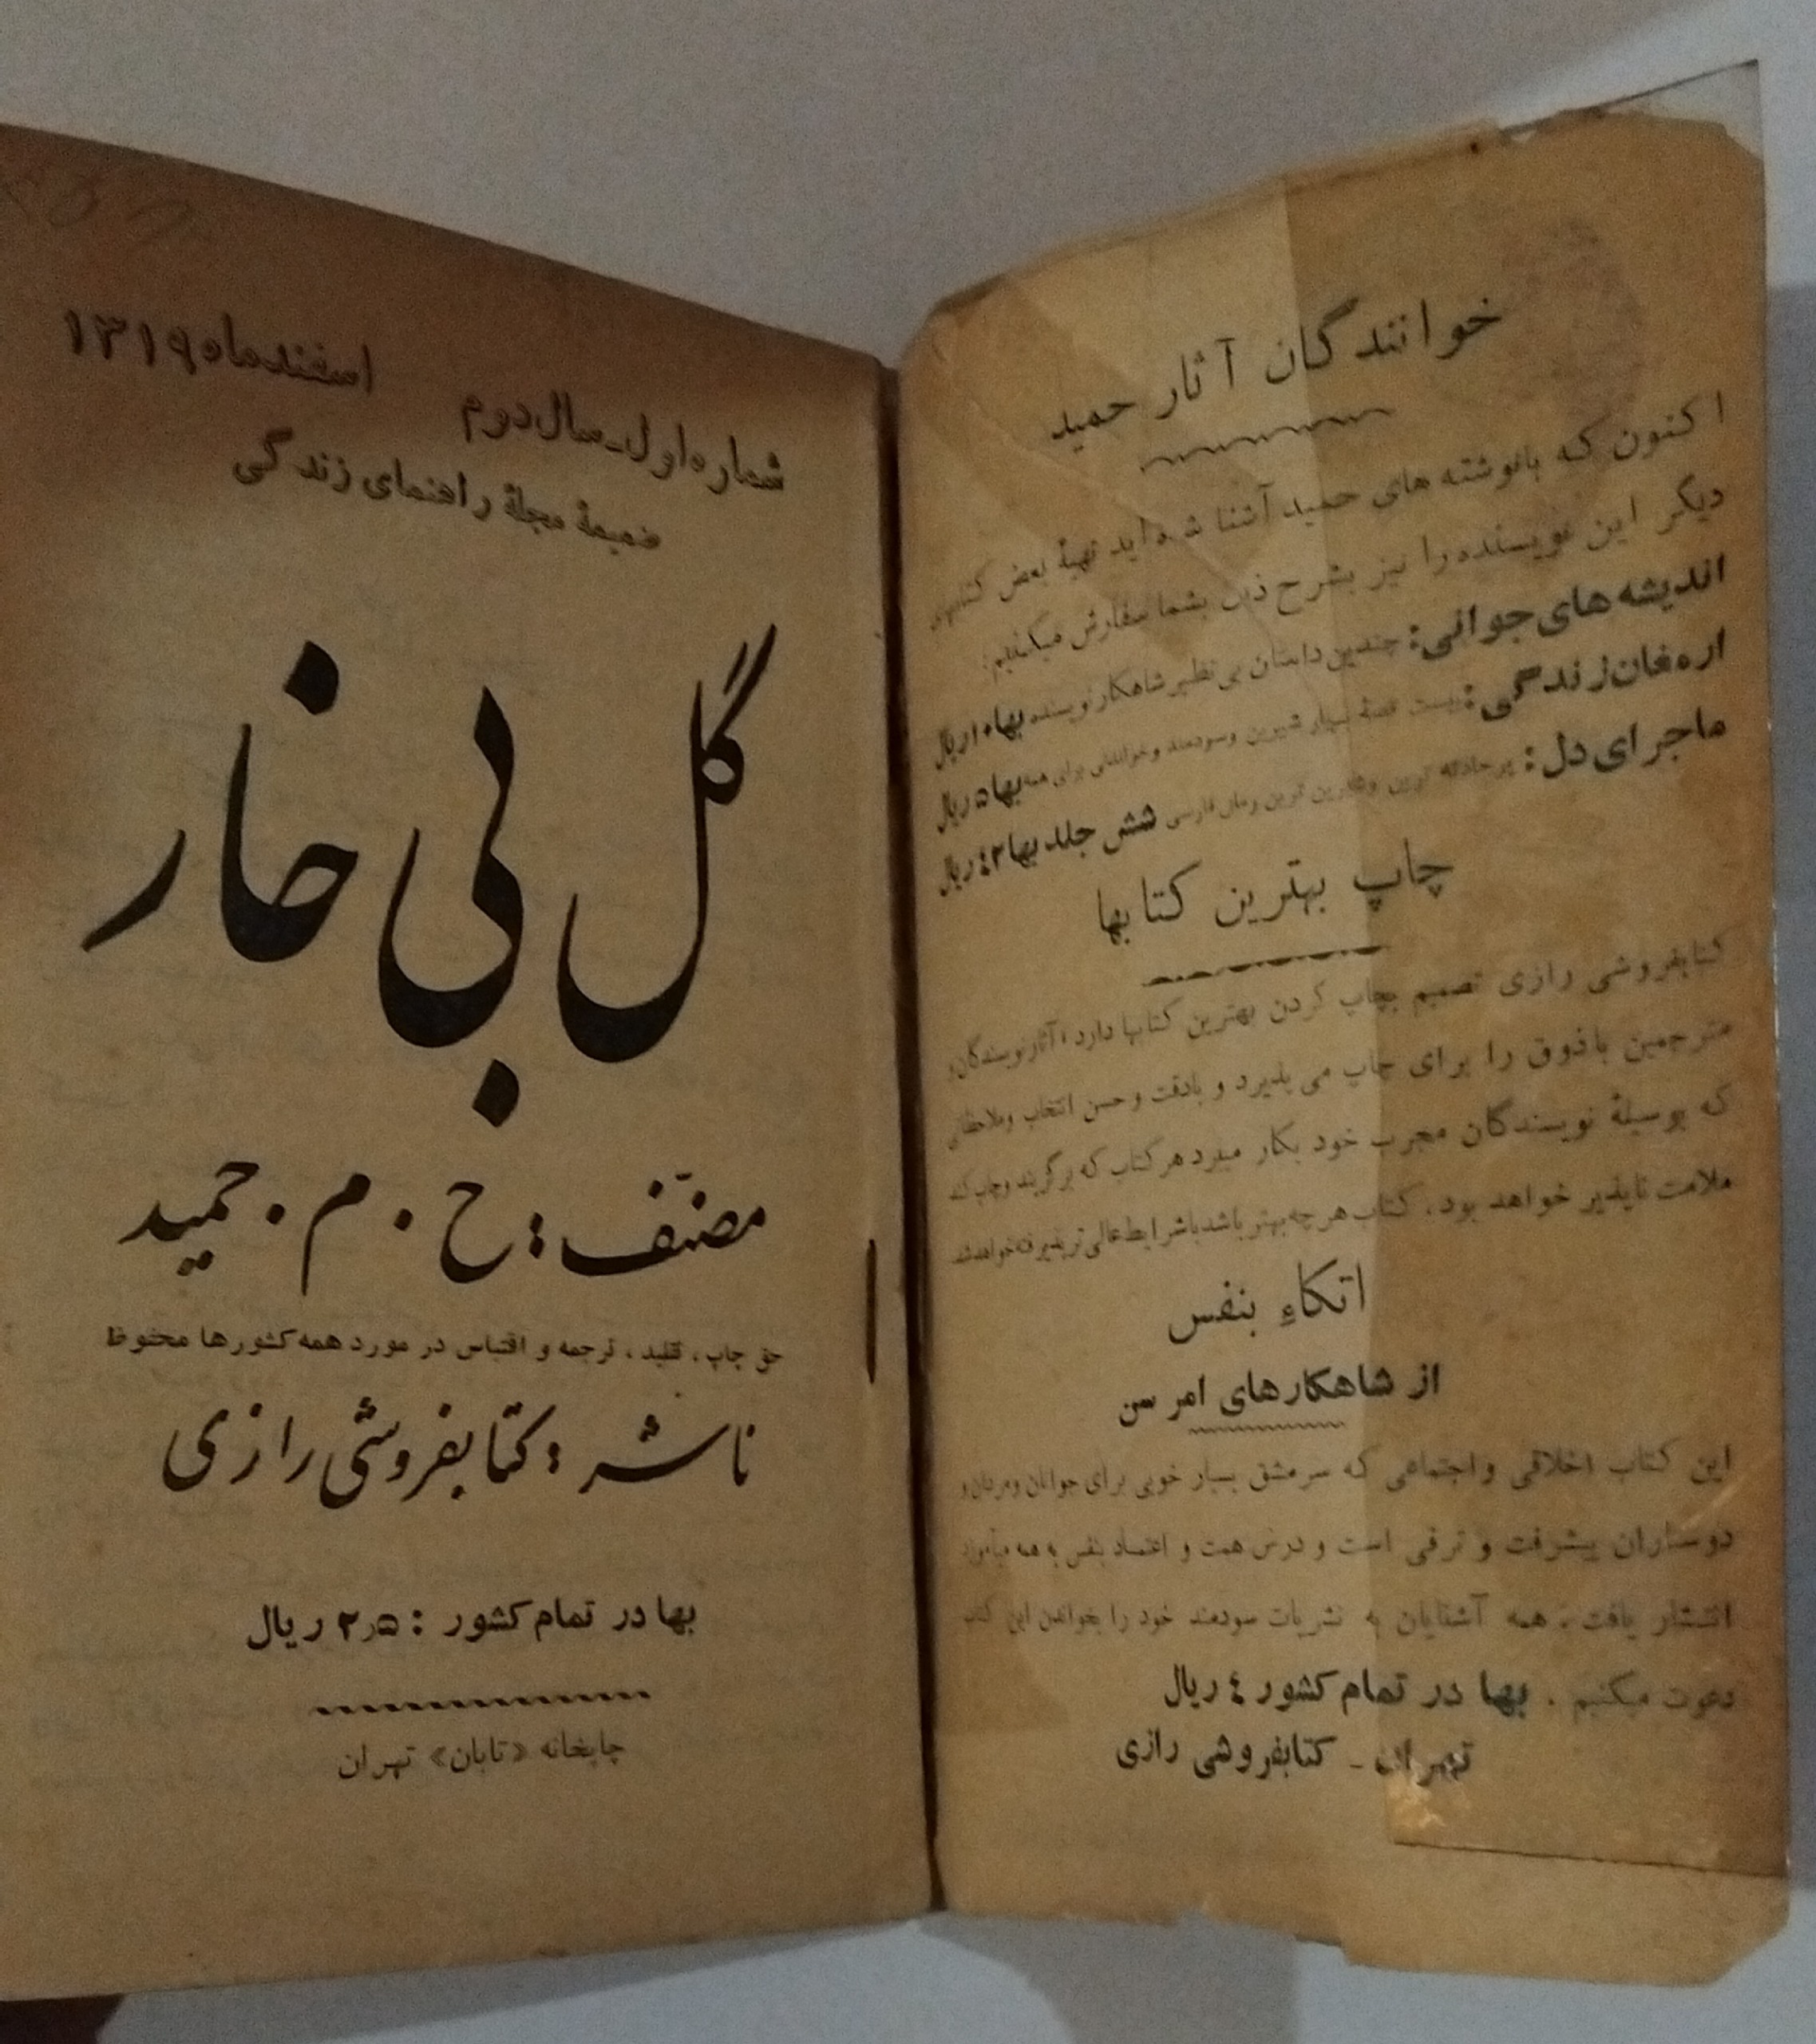 خوانندگان آثار حمید
اکنون که بانوشته های حمید آشنا شده اید تهیهٔ بعض کتابهای
دیگر این نویسنده را نیز بشرح ذیل بشما سفارش میکنیم:
اندیشه های جوانی: چندین داستان بی نظیر شاهکار نویسنده بها ۱۰ ریال
ارمغان زندگی: بیست قصهٔ بسیار شیرین وسودمند وخواندنی برای همه بها ۵ ریال
ماجرای دل: پرحادثه ترین وشیرین ترین رمان فارسی شش جلد بها ٤٢ ریال
چاپ بهترین کتابها
کتابفروشی رازی تصمیم بچاپ کردن بهترین کتابها دارد، آثار نویسندگان و
مترجمین باذوق را برای چاپ می پذیرد و بادقت وحسن انتخاب وملاحظاتی
که بوسیلهٔ نویسندگان مجرب خود بکار میبرد هر کتاب که برگزیند وچاپ کند
ملامت ناپذیر خواهد بود. کتاب هر چه بهتر باشد باشرایط عالی تر پذیرفته خواهد شد
اتکاء بنفس
از شاهکارهای امرسن
این کتاب اخلاقی واجتماعی که سرمشق بسیار خوبی برای جوانان ومردان و
دوستاران پیشرفت و ترقی است و درس همت و اعتماد بنفس به همه میآموزد
انتشار یافت. همه آشنایان به نشریات سودمند خود را بخواندن این کتاب
دعوت میکنیم. بها در تمام کشور ٤ ریال
تهران - کتابفروشی رازی
شماره اول-سال دوم اسفندماه ۱۳۱۹
ضمیمهٔ مجلهٔ راهنمای زندگی
گل بی خار
مصنّف: ح. م. حمید
حق چاپ، تقلید، ترجمه و اقتباس در مورد همه کشورها محفوظ
ناشر: کتابفروشی رازی
بها در تمام کشور: ۲٫۵ ریال
چاپخانه «تابان» تهران